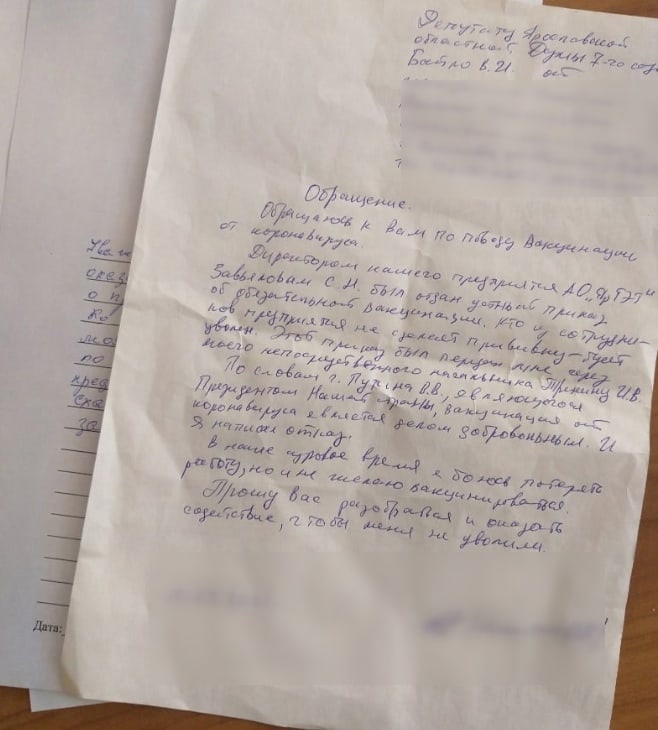 Депутату Ярославской
областной Думы 7-го соз
Байло В.И. от
Обращение.
Обращаюсь к Вам по поводу вакцинации
от коронавируса.
Директором нашего предприятия АО "ЯрТЭТ"
Завьяловым С.Н. был отдан устный приказ
об обязательной вакцинации. Кто из сотрудни-
ков предприятия не сделает прививку - будет
уволен. Этот приказ был передан мне через
моего непосредственного начальника И.В.
По словам г. Путина В.В., являющегося
Президентом Нашей страны, вакцинация от
коронавируса является делом добровольным. И
я написал отказ.
В наше суровое время я боюсь потерять
работу, но и не желаю вакцинироваться.
Прошу вас разобраться и оказать
содействие, чтобы меня не уволили.
Ува
оказ
о п
мо
по
пред
ска
за
Дата: